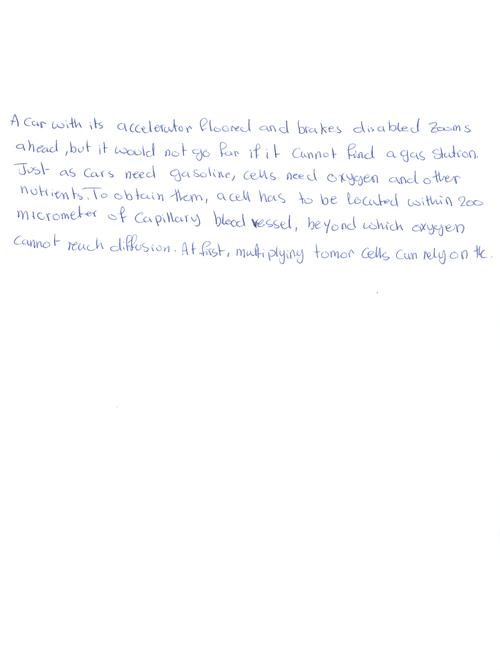 A car with its accelerator floored and brakes disabled zooms
ahead, but it would not go far if it cannot find a gas station.
Just as cars need gasoline, cells need oxygen and other
nutrients. To obtain them, a cell has to be located within 200
micrometer of capillary blood vessel, beyond which oxygen
cannot reach diffusion. At first, multiplying tomor cells can rely on the.